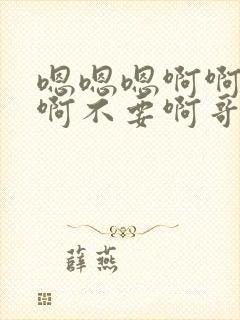 嗯嗯嗯啊啊
啊不要啊哥
薛燕